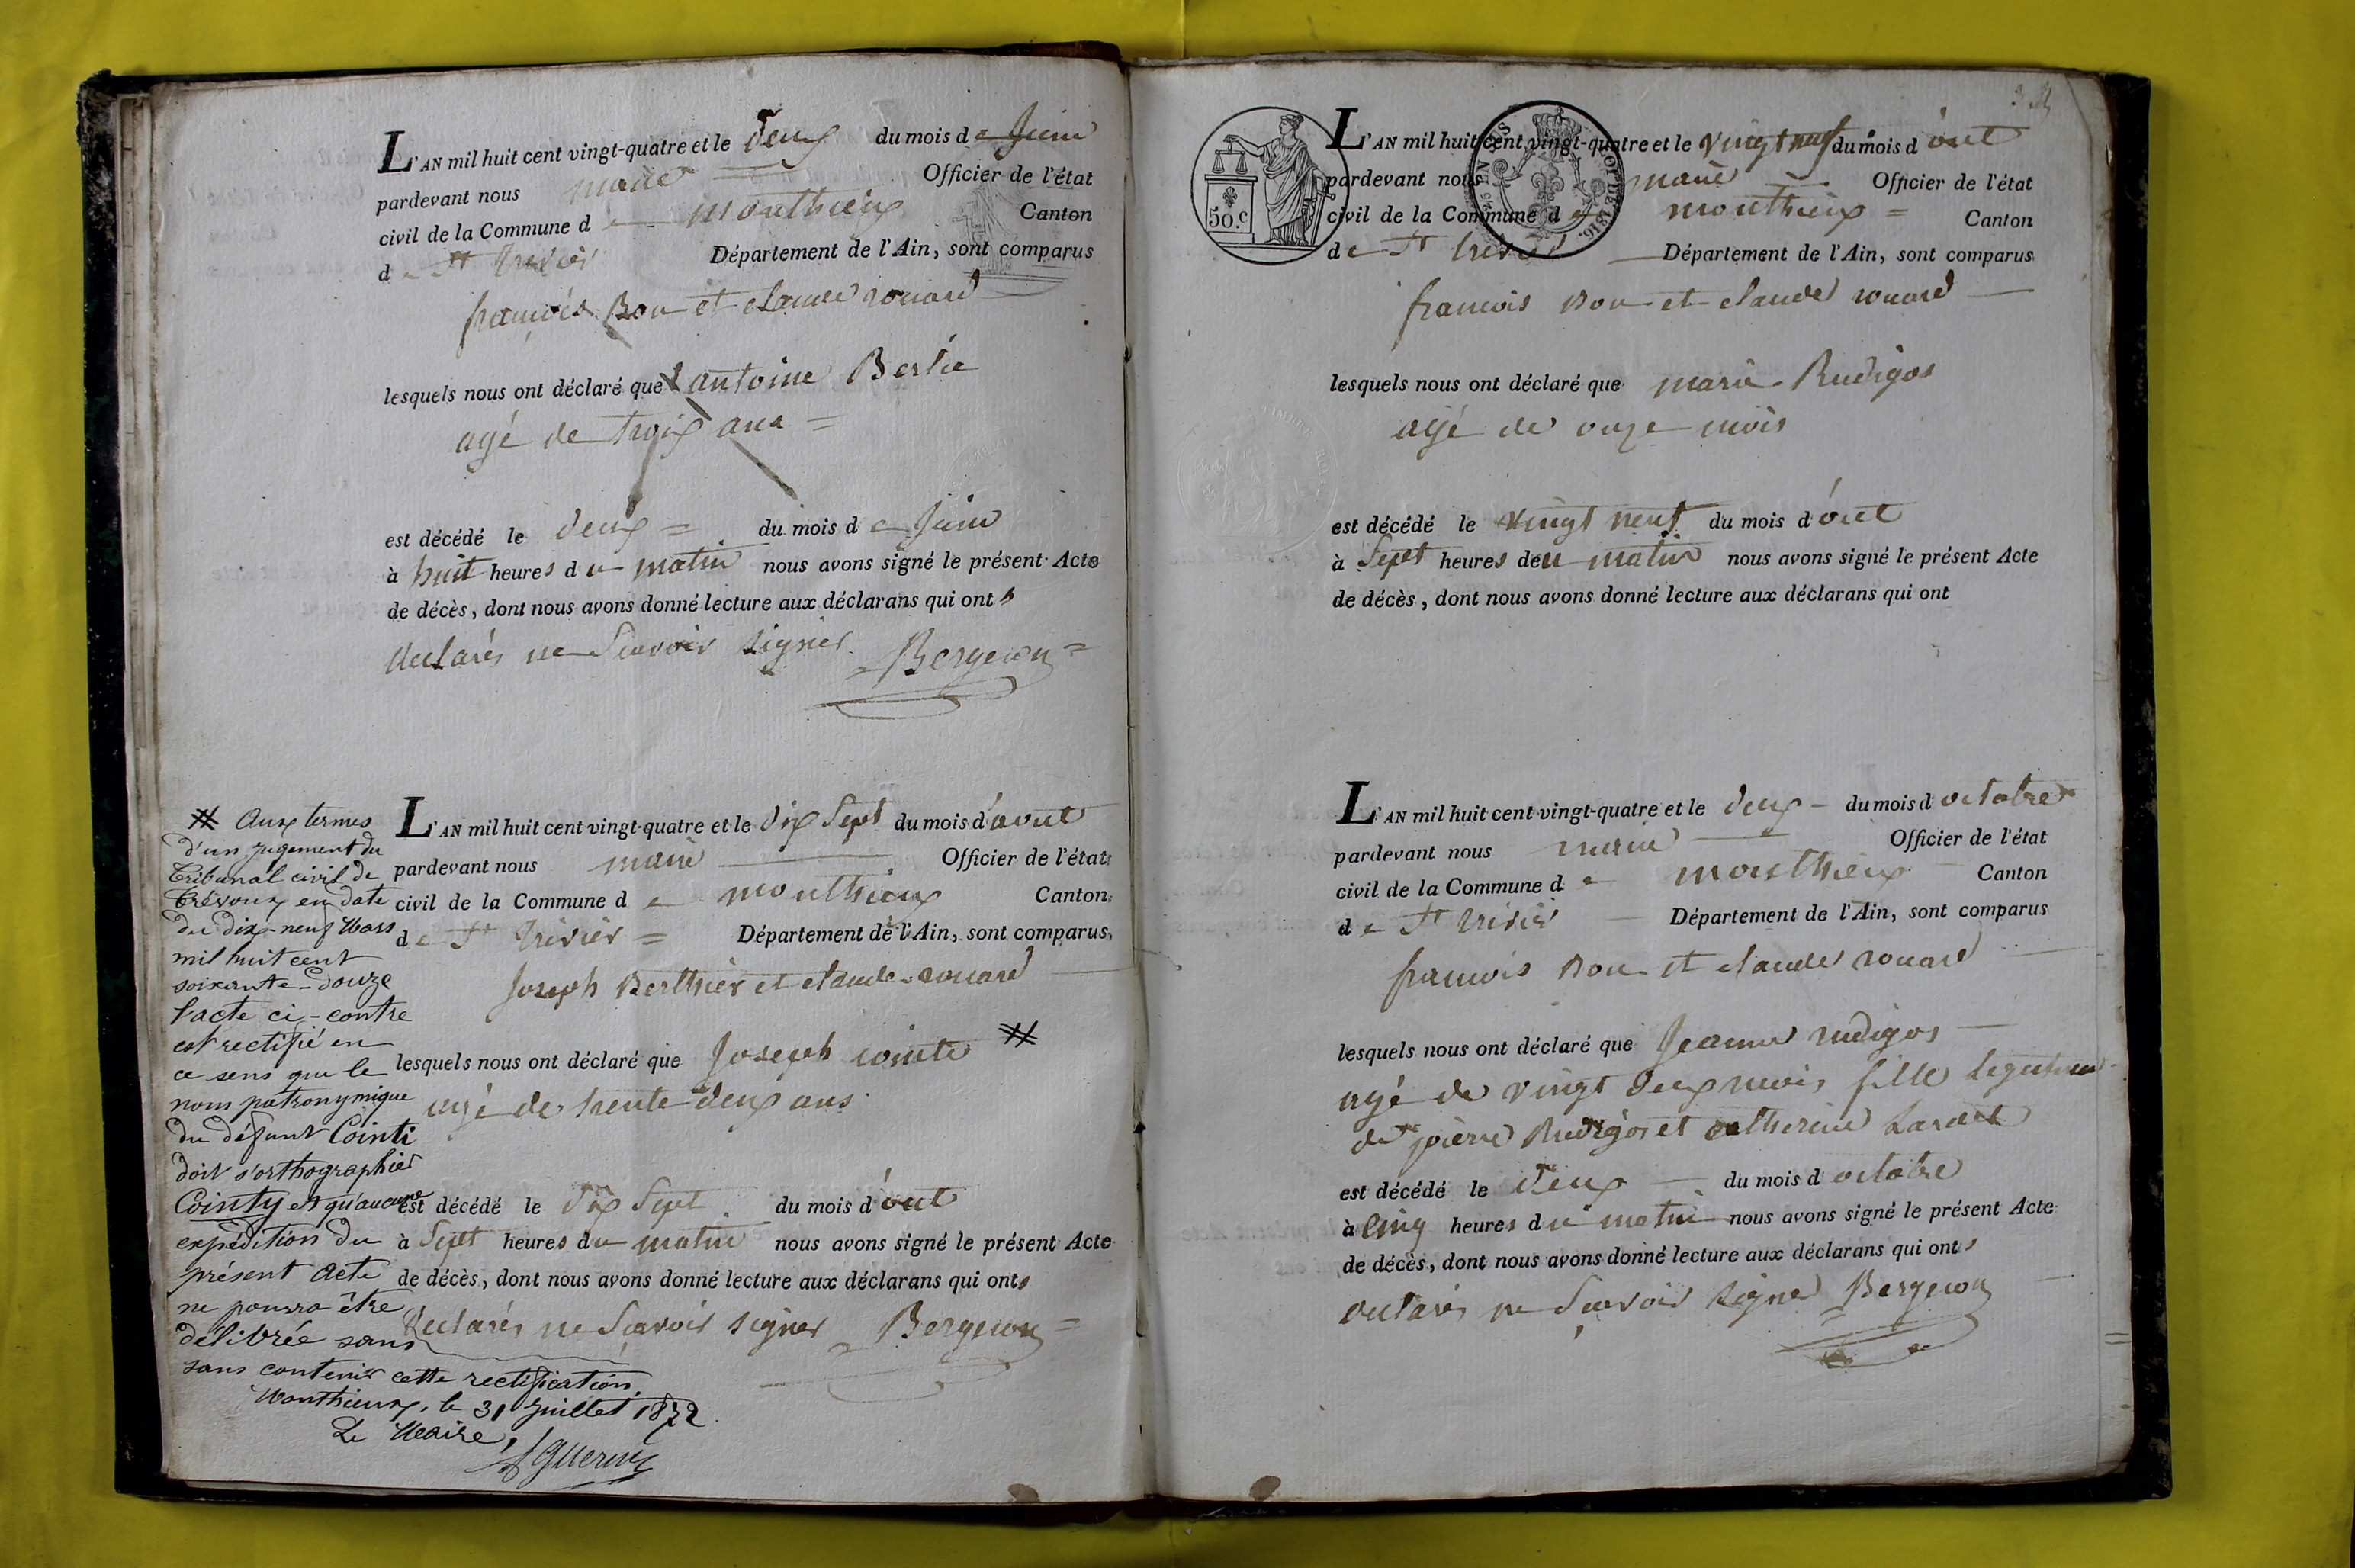 L'AN mil huit cent vingt-quatre et le deux du mois de Juin
pardevant nous maire Officier de l'état
civil de la Commune de monthieux Canton
de St trivier Département de l'Ain, sont comparus
françois Bon et claude rouard
lesquels nous ont déclaré que antoine Bertie
agé de trois ans =
est décédé le deux = du mois de Juin
à huit heures du matin nous avons signé le présent Acte
de décès, dont nous avons donné lecture aux déclarans qui ont
declarés ne Savoir signer Bergeron
L'AN mil huit cent vingt-quatre et le dix Sept du mois d'avout
pardevant nous maire Officier de l'état
civil de la Commune de monthieux Canton
de St trivier = Département de l'Ain, sont comparus
Joseph Berthier et claude rouard
lesquels nous ont déclaré que Joseph cointi #
agé de trente deux ans
est décédé le dix Sept du mois d'out
à Sept heures du matin nous avons signé le présent Acte
de décès, dont nous avons donné lecture aux déclarans qui ont
declarés ne Savoir signer Bergeron
# Aux termes
d'un jugement du
Tribunal civil de
Trévoux en date
du dix-neuf Mars
mil huit cent
soixante-douze
l'acte ci-contre
est rectifié en
ce sens que le
nom patronymique
du défunt Cointi
doit s'orthographier
Cointy et qu'aucune
expédition du
présent Acte
ne pourra être
délibrée sans
sans contenir cette rectification.
Monthieux, le 31 Juillet 1872
Le Maire,
Guerin
L'AN mil huit cent vingt-quatre et le vingt neuf du mois d'out
pardevant nous maire Officier de l'état
civil de la Commune de monthieux = Canton
de St trivier Département de l'Ain, sont comparus
50.c
francois Bon et claude rouard
lesquels nous ont déclaré que marie Rudigos
agé de onze mois
est décédé le vingt neuf du mois d'out
à Sept heures deu matin nous avons signé le présent Acte
de décès, dont nous avons donné lecture aux déclarans qui ont
L'AN mil huit cent vingt-quatre et le deux du mois d octobre
pardevant nous maire Officier de l'état
civil de la Commune de monthieux Canton
de St trivier Département de l'Ain, sont comparus
francois Bon et claude rouard
lesquels nous ont déclaré que Jeanne rudigos
agé de vingt deux mois, fille legitime
de pierre Rudigos et catherine
est décédé le deux du mois d octobre
à cinq heures du matin nous avons signé le présent Acte
de décès, dont nous avons donné lecture aux déclarans qui ont
declarés ne Savoir signer Bergeron